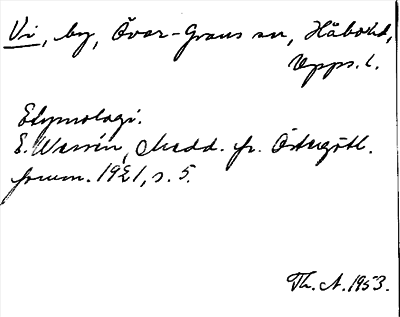 Vi, by, Övar-Grans sn, Håbo hd,
Upps. l.
Etymologi.
E. Wessén, Medd. fr. Östergötl.
fornm. 1921, s. 5.
Th. A. 1953.